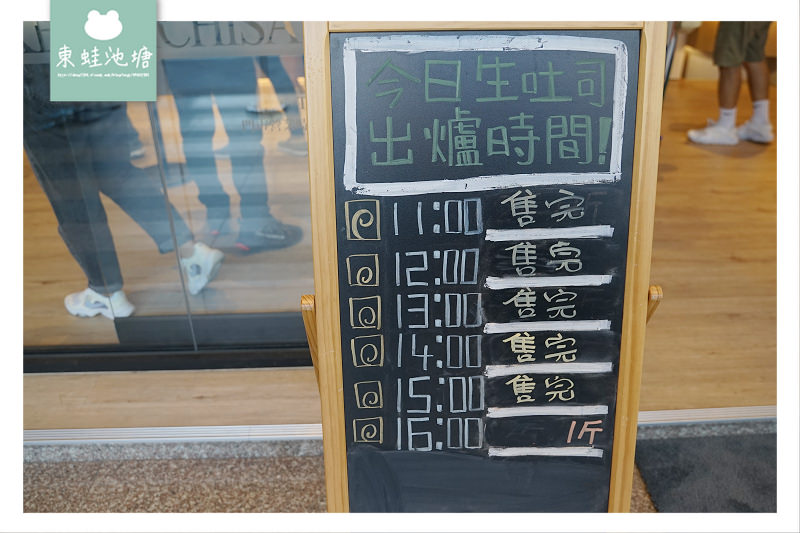 東蛙池塘
CHISA
今日生吐司
出爐時間!
11:00 售完
12:00 售完
13:00 售完
14:00 售完
15:00 售完
16:00 1斤